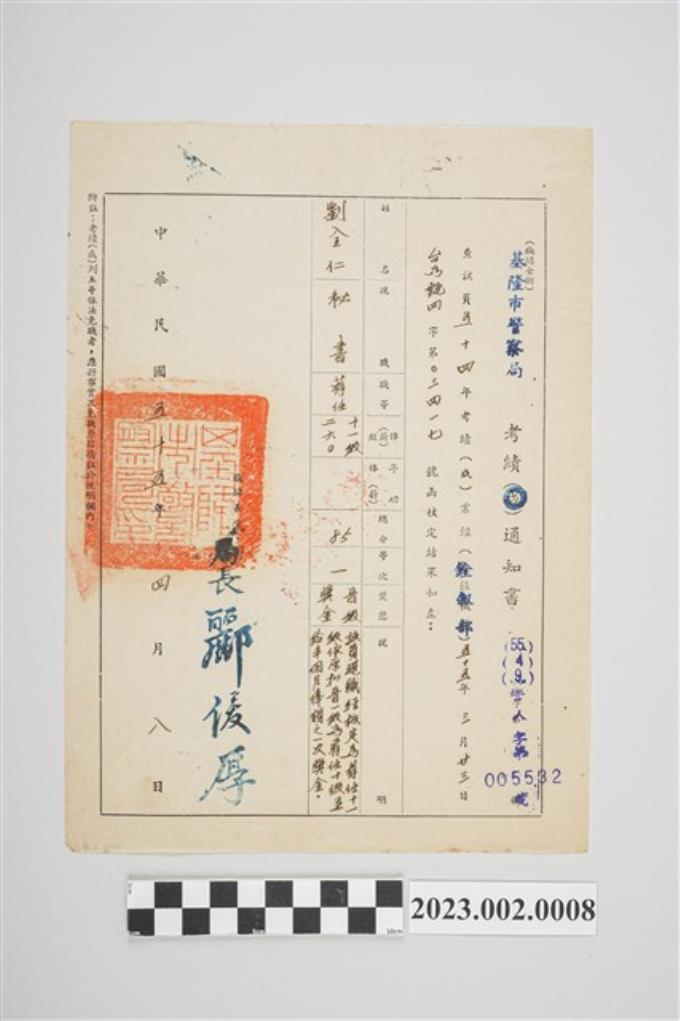 (機關全銜)
基隆市警察局 考績(成)通知書
(55.4.9.)警人字第005532號
查該員五十四年考績(成)業經(銓敘部)五十五年三月廿三日
台為號四字第〇三四一七號函核定結果如左:
姓名 現職 職等 俸(薪)級 年功俸(薪) 總分 等次 獎懲 說明
劉全仁 秘書 荐任 十一級 二六〇 85 一 晉級 獎金
該員現職經核定為荐任十一
級依原扣晉一級為荐任十級並
給半個月俸額之一次獎金。
機關長
局長 酈俊厚
中華民國五十五年四月八日
附註:考績(成)列五等依法免職者,應行
基隆市警察局印
2023.002.0008